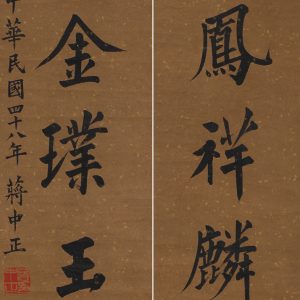 鳳祥麟
金璞玉
中華民國四十八年 蔣中正